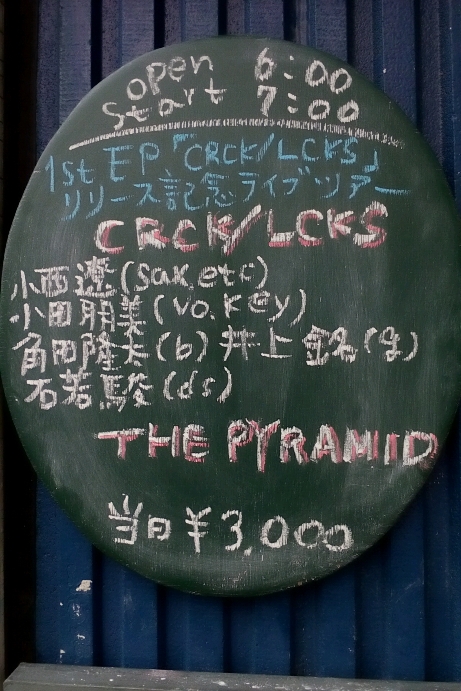 open 6:00
Start 7:00
1st EP「CRCK/LCKS」
リリース記念ライブツアー
CRCK/LCKS
小西遼(sax.etc)
小田朋美(vo.key)
角田隆太(b) 井上銘(g)
石若駿(ds)
THE PYRAMID
当日¥3,000